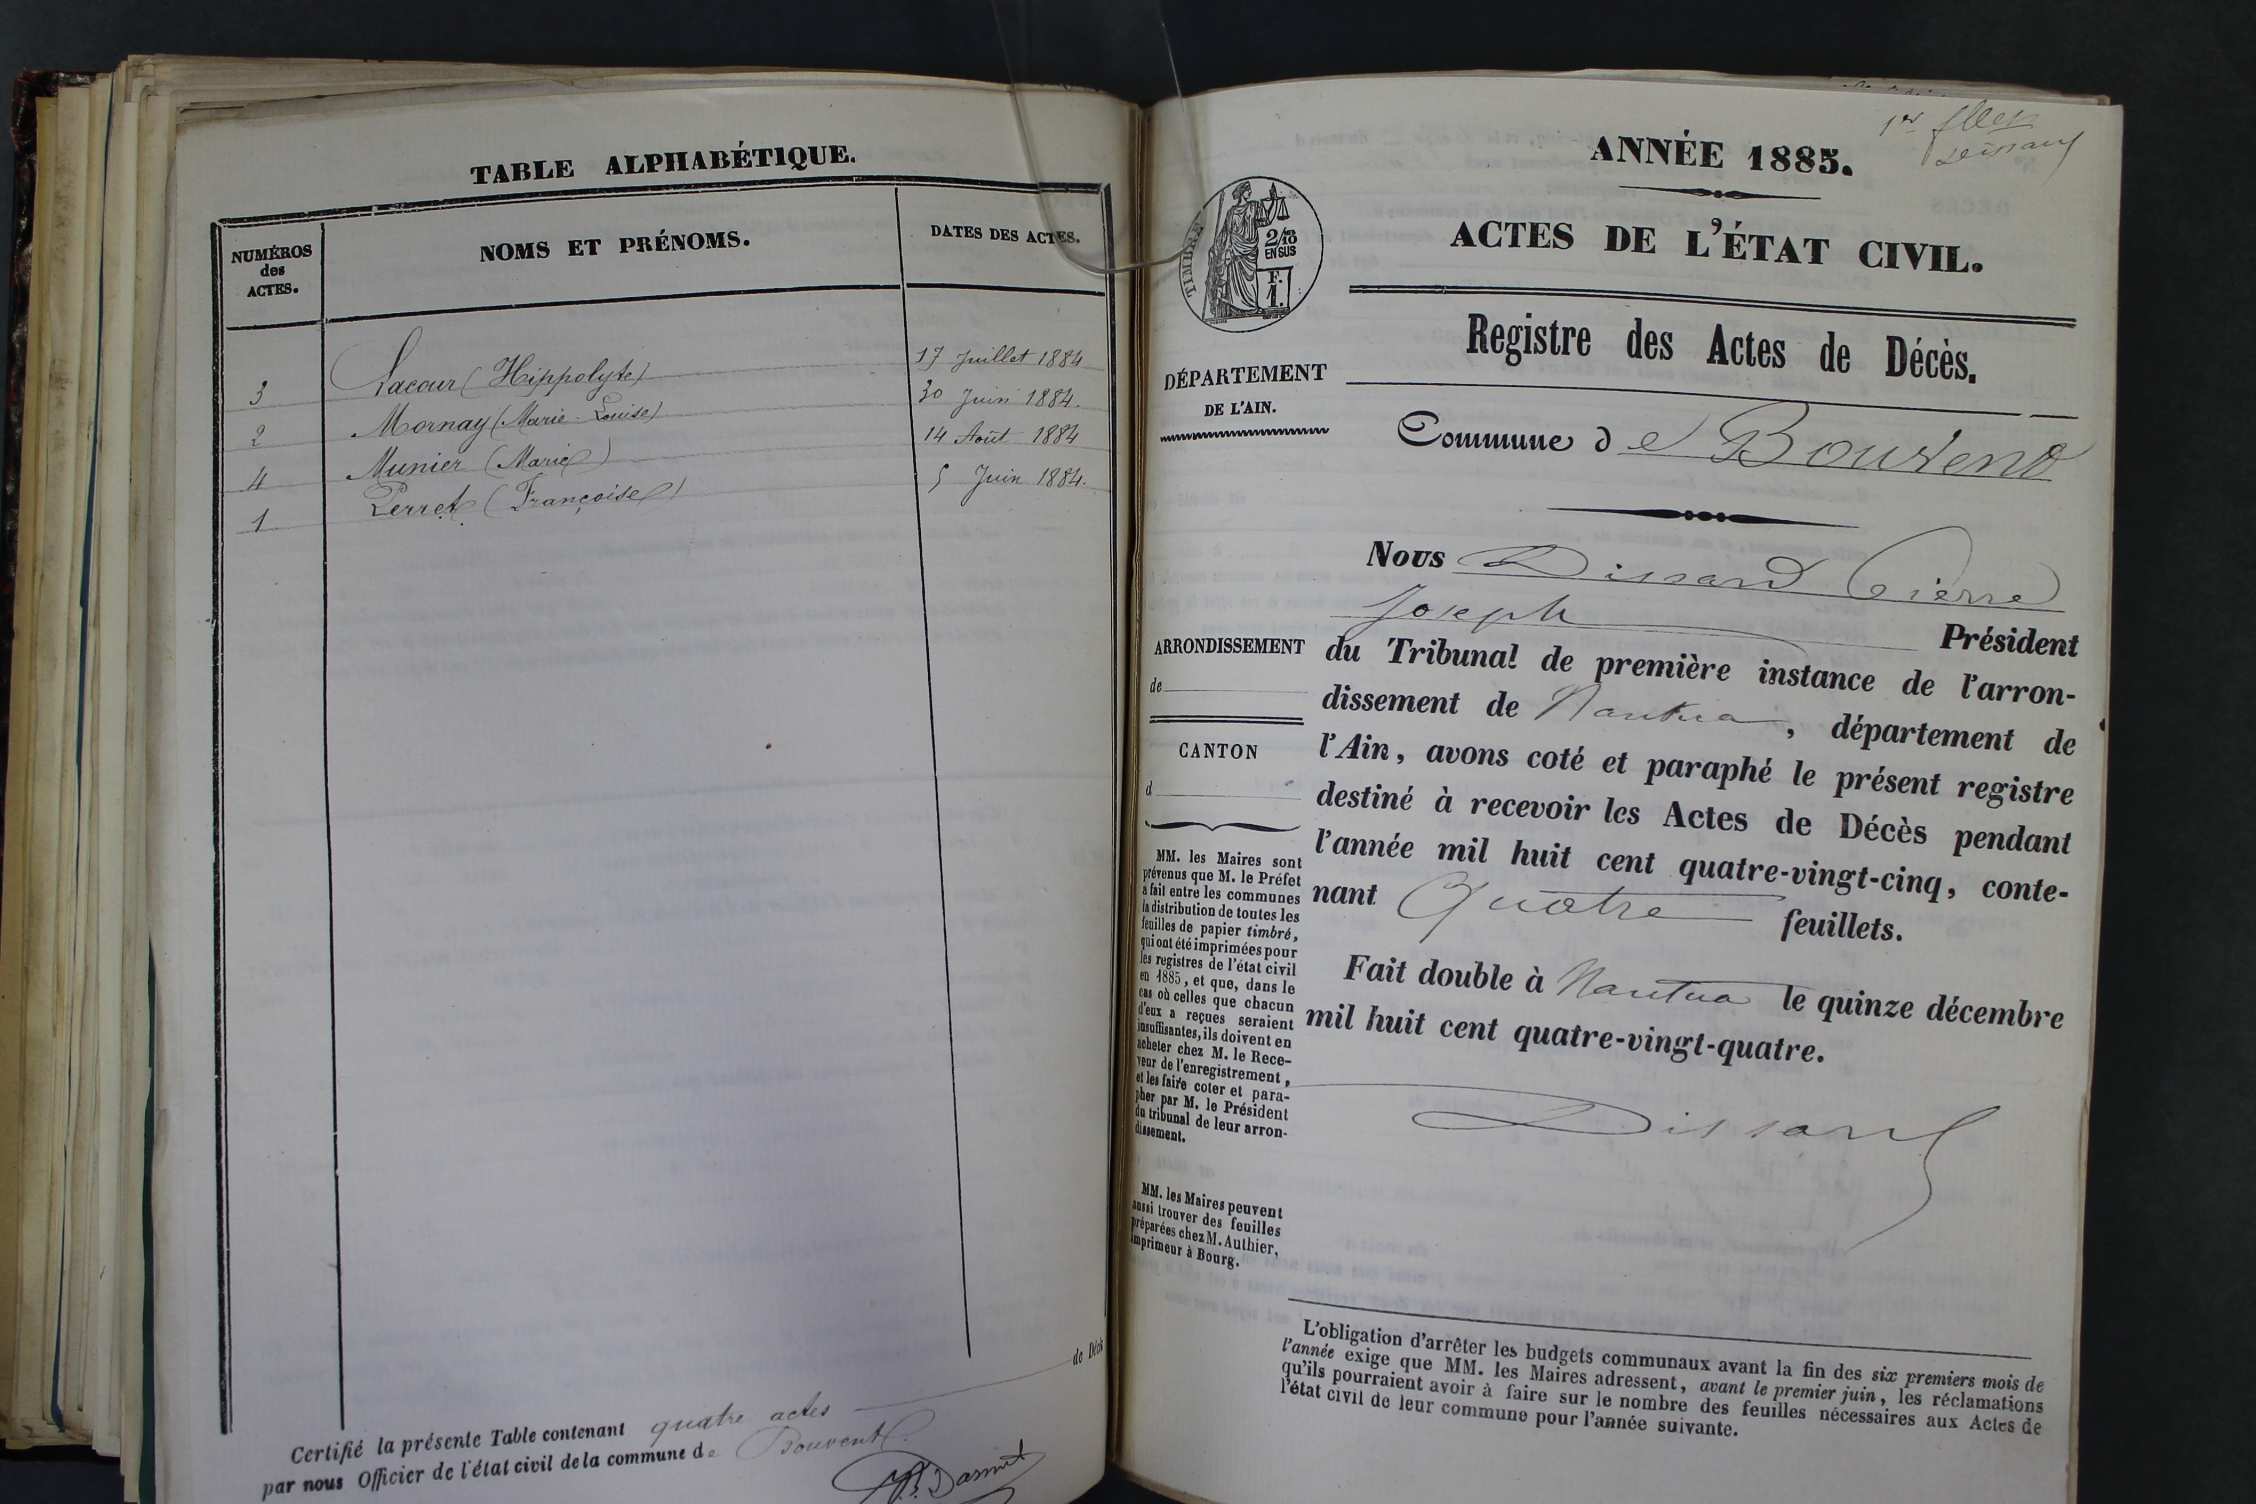 TABLE ALPHABÉTIQUE.
NUMÉROS
des
ACTES.
NOMS ET PRÉNOMS.
DATES DES ACTES.
3 Lacour (Hippolyte) 17 Juillet 1884
2 Mornay (Marie-Louise) 30 Juin 1884.
4 Munier (Marie) 14 Août 1884
1 Perret (Françoise) 5 Juin 1884.
de Décès
Certifié la présente Table contenant quatre actes
par nous Officier de l'état civil de la commune de Bouvent
1er
ANNÉE 1885.
ACTES DE L'ÉTAT CIVIL.
TIMBRE
2/10
EN SUS
F.
1.
Registre des Actes de Décès.
DÉPARTEMENT
DE L'AIN.
Commune de Bouvent
Nous Dissard Pierre
Joseph Président
ARRONDISSEMENT
de
CANTON
d
du Tribunal de première instance de l'arron-
dissement de Nantua, département de
l'Ain, avons coté et paraphé le présent registre
destiné à recevoir les Actes de Décès pendant
l'année mil huit cent quatre-vingt-cinq, conte-
nant Quatre feuillets.
Fait double à Nantua le quinze décembre
mil huit cent quatre-vingt-quatre.
Dissard
MM. les Maires sont
prévenus que M. le Préfet
a fait entre les communes
la distribution de toutes les
feuilles de papier timbré,
qui ont été imprimées pour
les registres de l'état civil
en 1885, et que, dans le
cas où celles que chacun
d'eux a reçues seraient
insuffisantes, ils doivent en
acheter chez M. le Rece-
veur de l'enregistrement,
et les faire coter et para-
pher par M. le Président
du tribunal de leur arron-
dissement.
MM. les Maires peuvent
aussi trouver des feuilles
préparées chez M. Authier,
imprimeur à Bourg.
L'obligation d'arrêter les budgets communaux avant la fin des six premiers mois de
l'année exige que MM. les Maires adressent, avant le premier juin, les réclamations
qu'ils pourraient avoir à faire sur le nombre des feuilles nécessaires aux Actes de
l'état civil de leur commune pour l'année suivante.